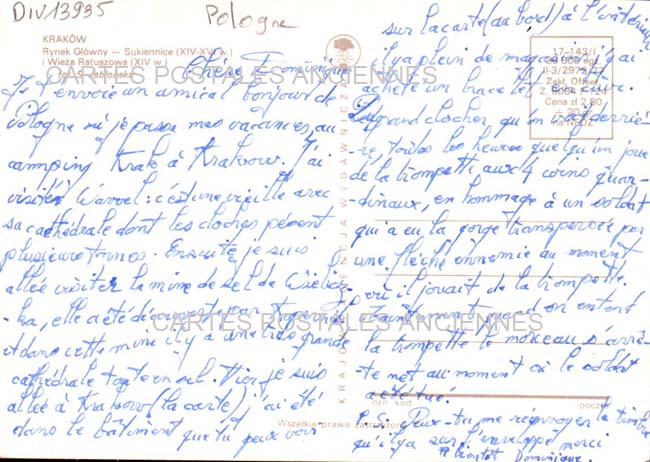 DIV13935
Pologne
KRAKÓW
Rynek Główny — Sukiennice (XIV-XVI w.)
i Wieża Ratuszowa (XIV w.)
Fot. S. Jabłońska
CARTES POSTALES ANCIENNES
Chère Frédérique
Je t'envoie un amical bonjour de
Pologne où je passe mes vacances, au
camping Krak à Krakow. J'ai
visité Wawel : c'est une vieille avec
sa cathédrale dont les cloches pèsent
plusieurs tonnes. Ensuite je suis
allée visiter la mine de sel de Wielicz-
-ka, elle a été découverte par
et dans cette mine il y a une très grande
cathédrale toute en sel. Hier je suis
allée à Krakow (la carte) j'ai été
dans le bâtiment que tu peux voir
KRAJOWA AGENCJA WYDAWNICZA
17-143/I
Zakł. Offset.
Cena zł 2,80
sur la carte (au bord) à l'intérieur
il y a plein de magasins, j'ai
acheté un bracelet en cuir.
Du grand clocher, qu'on voit derriè-
re, toutes les heures quelqu'un joue
de la trompette aux 4 coins "car-
dinaux, en hommage à un soldat
qui a eu la gorge transpercée par
une flèche ennemie au moment
où il jouait de la trompette.
maintenant quand on entend
la trompette le morceau s'arrê-
te net au moment où le soldat
a été tué.
CARTES POSTALES ANCIENNES
Wszelkie prawa zastrzeżone
P.S. Peux-tu me renvoyer le timbre
qu'il y a sur l'enveloppe merci
A bientôt Dominique.